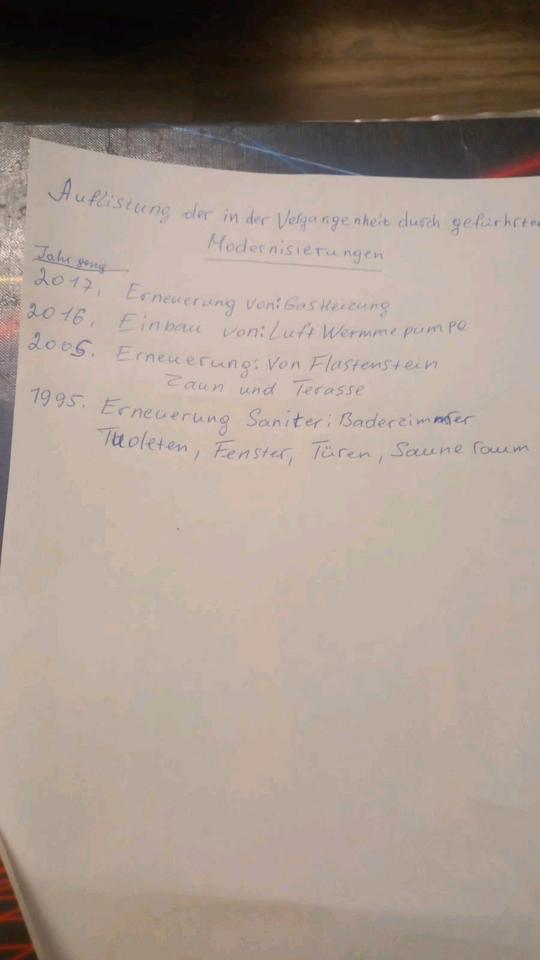 Auflistung der in der Vergangenheit durch gefürhrten
Modernisierungen
Jahrgang
2017, Erneuerung von: Gas Heizung
2016, Einbau von: Luft Wermme pumpe
2005. Erneuerung: von Flastenstein
Zaun und Terasse
1995. Erneuerung Saniter: Baderzimmer
Tuoleten, Fenster, Türen, Saune raum